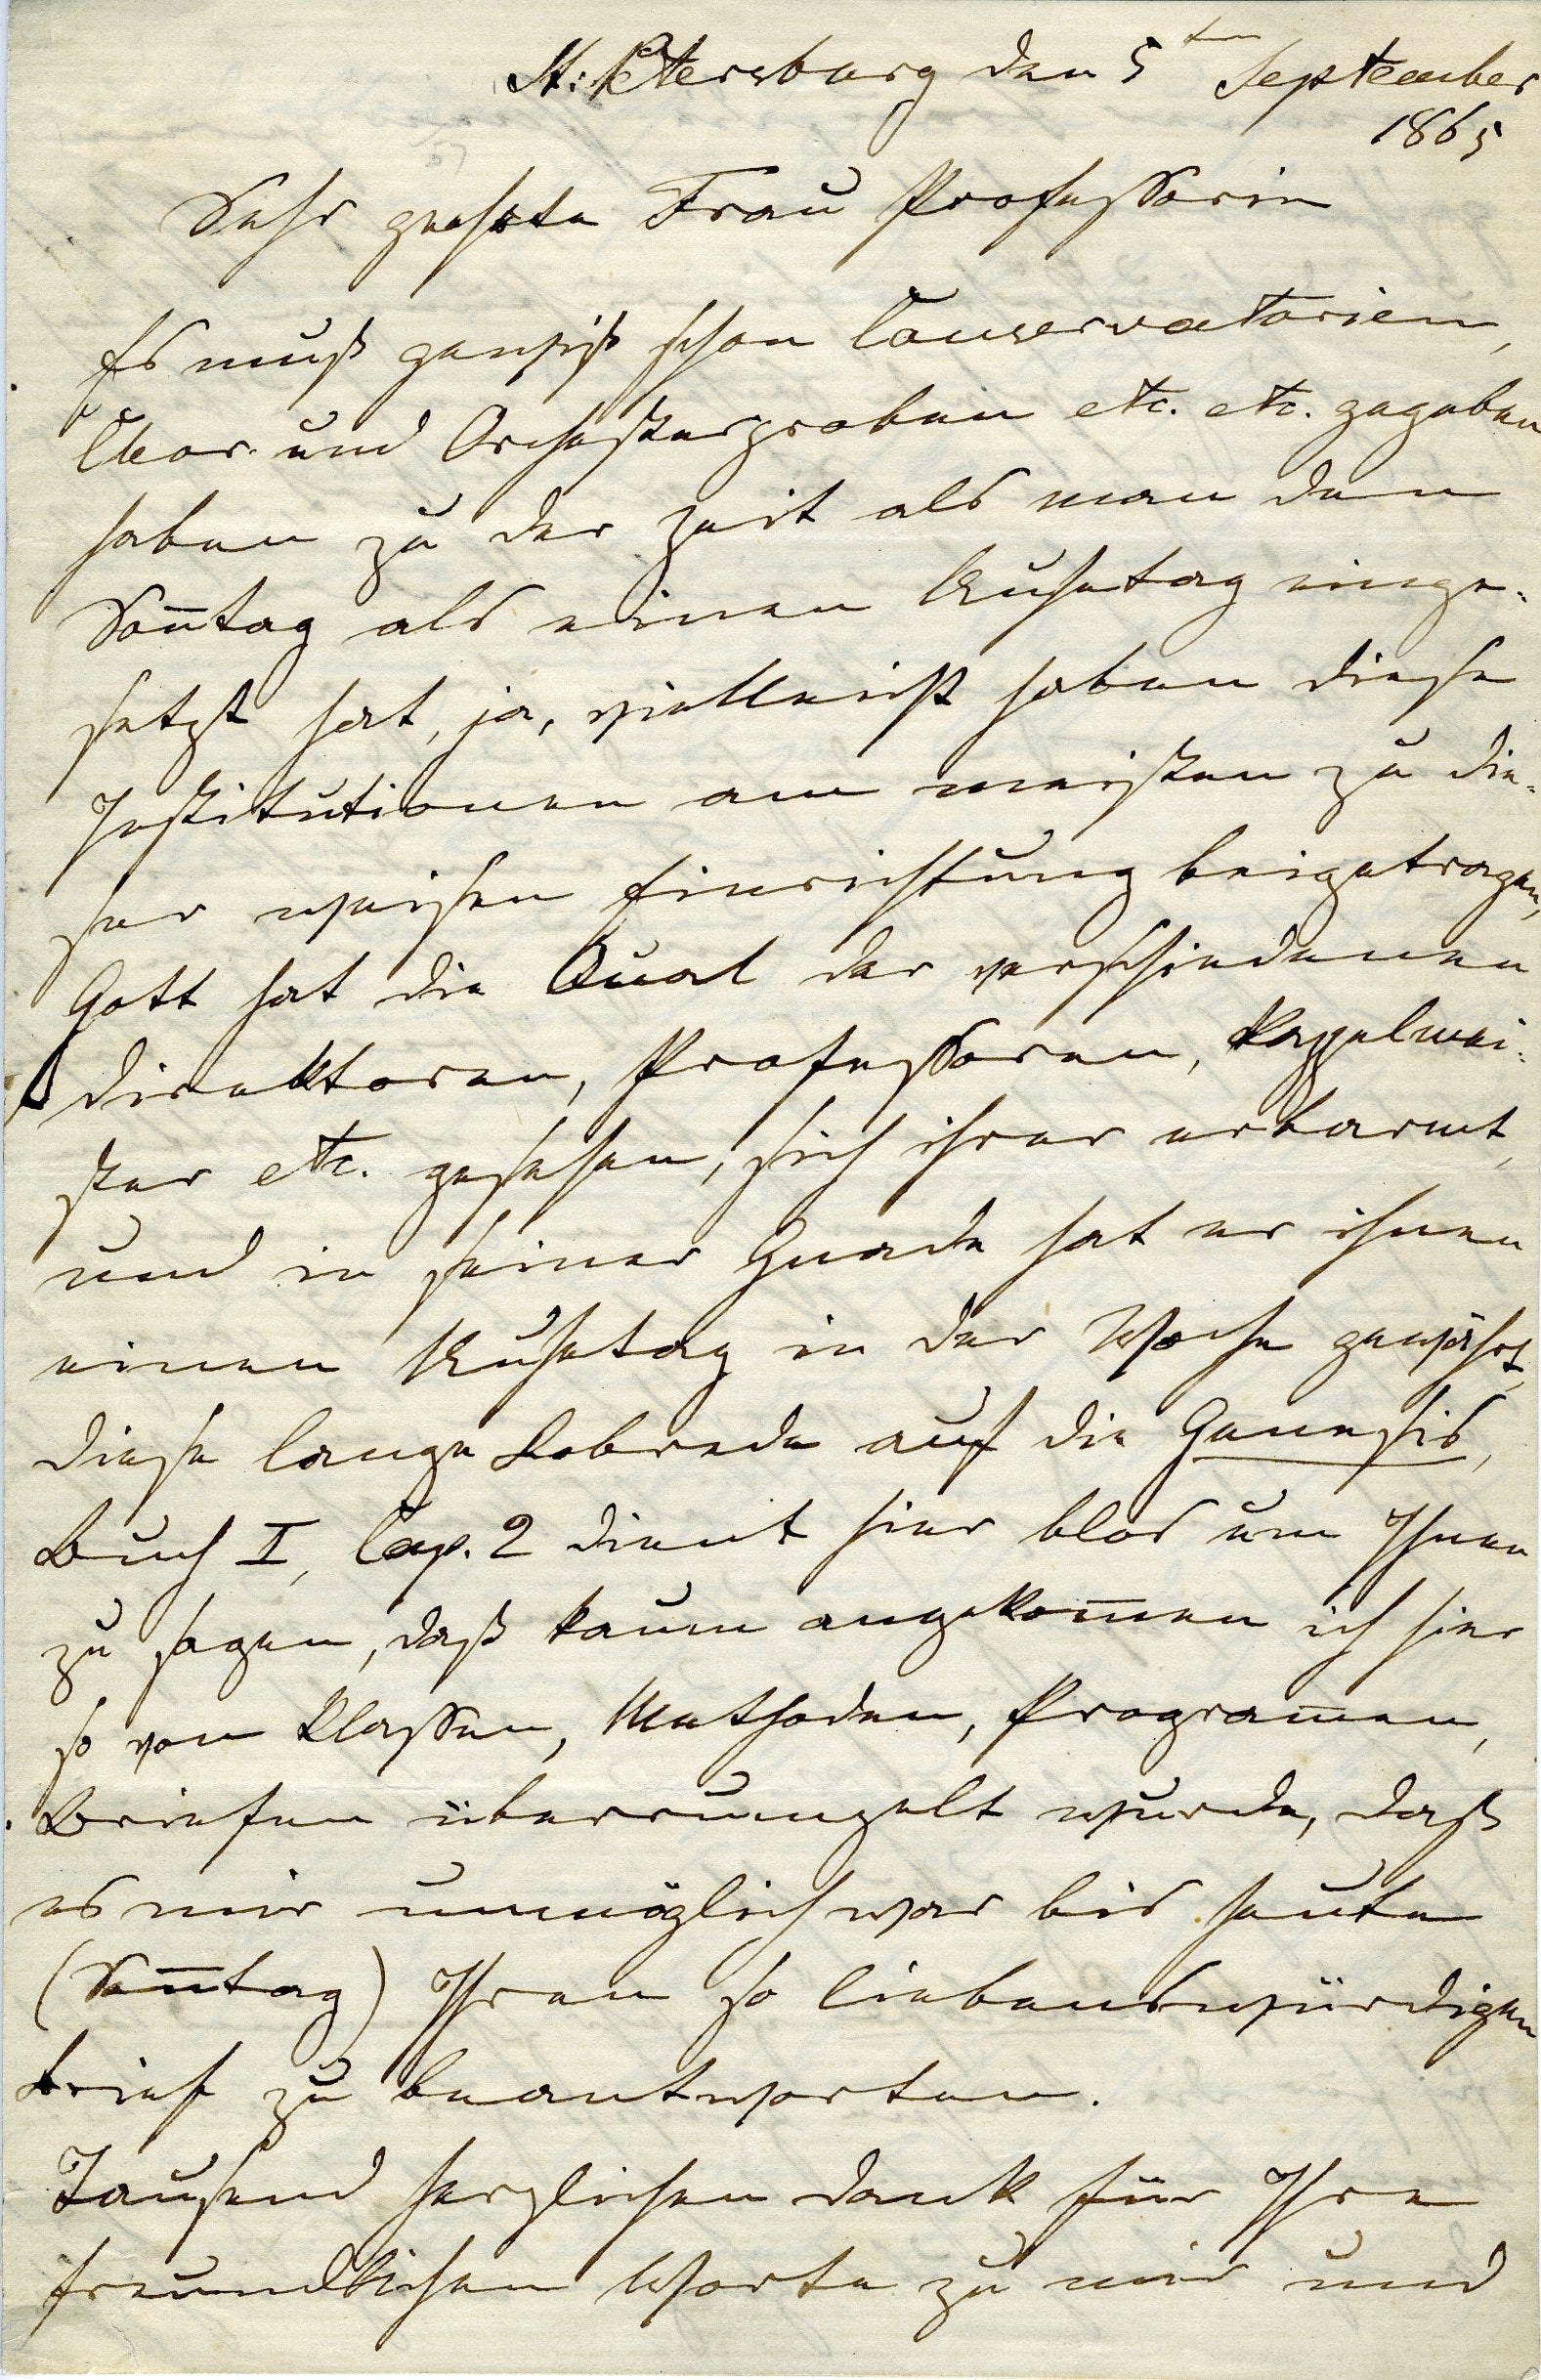 St: Petersburg den 5ten September
1865
Sehr geehrte Frau Professorin
Es muß gewiß schon Conservatorien,
Chor- und Orchesterproben etc. etc. gegeben
haben zu der Zeit als man den
Son̄tag als einen Ruhetag einge-
setzt hat, ja, vielleicht haben diese
Institutionen am meisten zu die-
ser weisen Einrichtung beigetragen,
Gott hat die Qual der verschiedenen
Direktoren, Professoren, Kappelmei-
ster etc. gesehen, sich ihrer erbarmt,
und in seiner Gnade hat er ihnen
einen Ruhetag in der Woche gewährt,
diese lange Lobrede auf die Genesis,
Buch I, Cap. 2 dient hier blos um Ihnen
zu sagen, daß kaum angekom̄en ich hier
so von Klassen, Methoden, Program̄en,
Briefen überrumpelt wurde, daß
es mir unmöglich war bis heute
(Son̄tag) Ihren so liebenswürdigen
Brief zu beantworten.
Tausend herzlichen Dank für Ihre
freundlichen Worte zu mir und